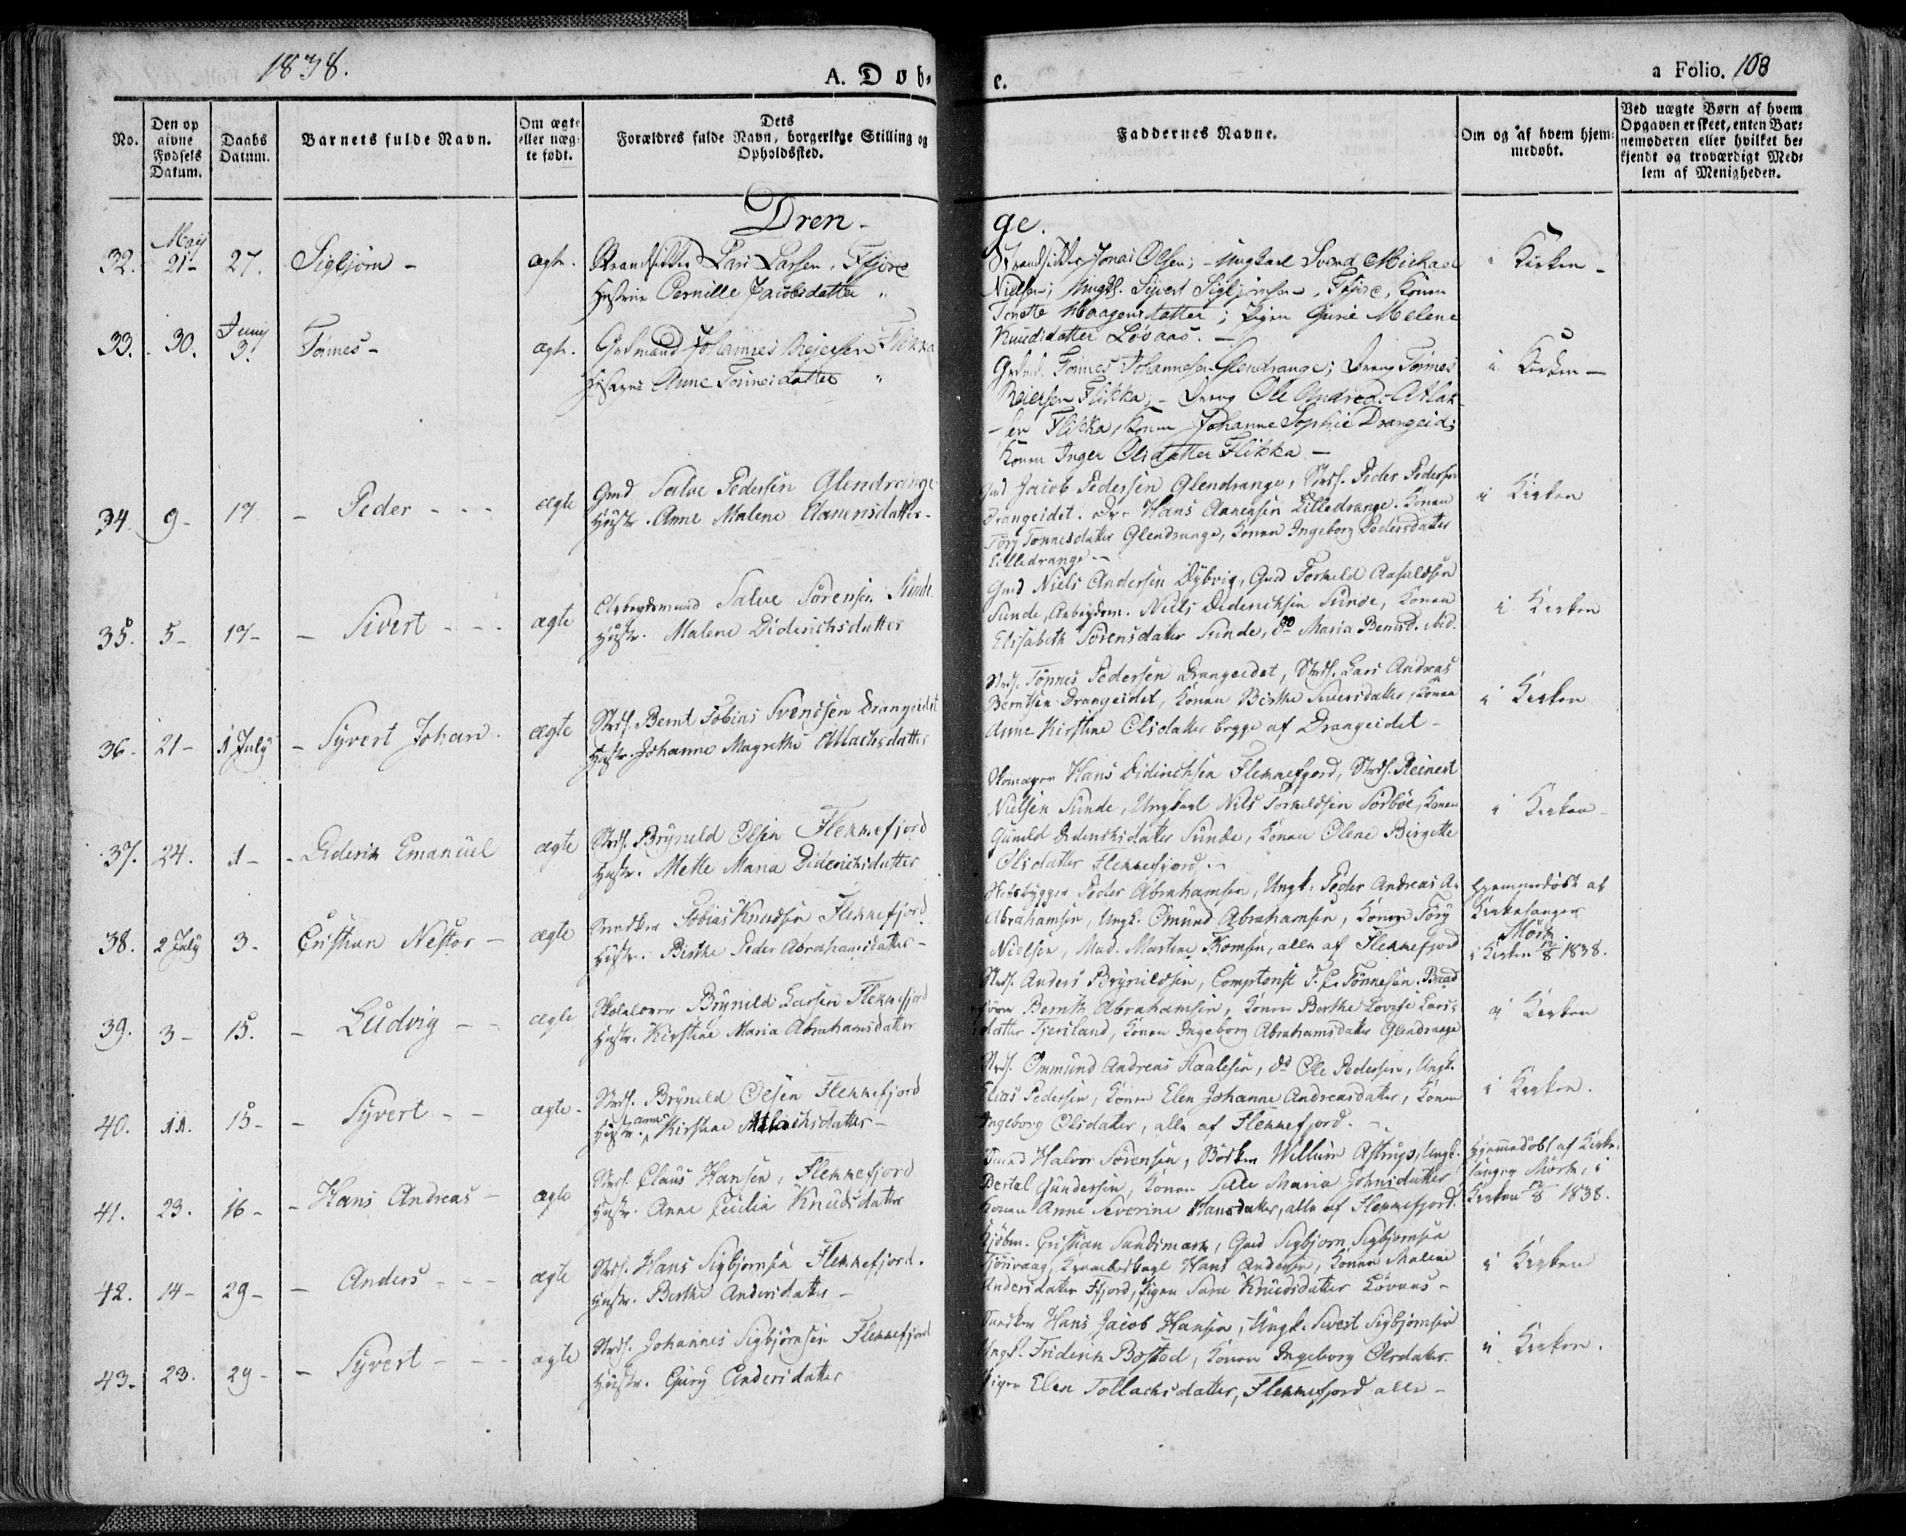 1838.
A. Døb-
e.
a Folio. 108
No.
Den op
givne
Fødsels
Datum.
Daabs
Datum.
Barnets fulde Navn.
Om ægte
eller uæg-
te født.
Dets
Forældres fulde Navn, borgerlige Stilling og
Opholdssted.
Faddernes Navne.
Om og af hvem hjem-
medøbt.
Ved uægte Børn af hvem
Opgaven er skeet, enten Bar-
nemoderen eller hvilket be-
kjendt og troværdigt Med-
lem af Menigheden.
Dren-
ge.
32. May 21- 27. Sigbjørn - ægte.
Lars Larsen, Ffjore
Hustrue Pernille Jacobsdatter "
Jonas Olsen; - Ungkarl Svend Michael
Nielsen; Ungk. Sivert Sigbjørnsen, Ffjore, Konen
Tonette Haagensdatter; Pigen Gurie Melene
Knudsdatter Løvaas. -
i Kirken -
33. 30. Junij 3. Tønnes - ægte.
Grdmand Johannes Reiersen Flikka
Hustrue Anne Tønnesdatter "
Grdmd. Tønnes Johannesen Glendrange; Dreng Tønnes
Reiersen Flikka; - Dreng Ole Andreas Atlak-
-en Flikka, Konen Johanne Sophie Drangeid;
Konen Inger Olsdatter Flikka -
i Kirken -
34. 9- 17. - Peder - - - ægte
Gmd Salve Pedersen Glendrange
Hustr. Anne Malene Aamnsdatter -
Gmd Jacob Pedersen Glendrange, Strds. Peder Pedersen
Drangeidet. Dr- Hans Aanensen Lilledrange. Konen
Tory Tønnesdatter Glendrange, Konen Ingeborg Pedersdatter
Lilledrange -
i Kirken
35. 5- 17- - Sivert - - - ægte
Arbeydsmand Salve Sørensen Sunde
Hustr. Malene Diderichsdatter
Gmd Niels Andersen Dybvig, Gmd Torkeld Aasuldsen
Sunde, Arbeydsm. Niels Diderichsen Sunde, Konen
Elisabeth Sørensdatter Sunde, do Maria Bernsd. ibid.
i Kirken
36- 21- 1 July - Syvert Johan. ægte
Strds. Bernt Tobias Svendsen Drangeidet
Hustr. Johanne Magrethe Atlachsdatter
Strds. Tønnes Pedersen Drangeidet, Strds. Lars Andreas
Berntsen Drangeidet, Konen Birthe Siversdatter, Konen
Anne Kirstine Olsdatter begge af Drangeidet -
i Kirken
37. 24. 1- - Diderich Emanuel ægte
Strds. Brynild Olsen Flekkefjord
Hustr. Mette Maria Diderichsdatter
Hans Didrichsen Flekkefjord, Strds. Reinert
Nielsen Sunde, Ungkarl Nils Torkeldsen Sørbøe, Konen
Gunild Diderichsdatter Sunde, Konen Olene Birgette
Olsdatter Flekkefjord. -
i Kirken -
38. 2 July 3- Cristian Nestor - ægte
Snedker Tobias Knudsen Flekkefjord
Hustr. Birthe Peder Abrahamsdatter -
Peder Abrahamsen, Ungk. Peder Andreas A-
Abrahamsen, Ungk. Omund Abrahamsen, Konen Tory
Nielsen, Mad. Martine Thomsen, alle af Flekkefjord
Hjemmedøbt af
Kirkesanger
Mørk,
i Kirken 12/8 1838.
39. 3- 15. - Ludvig - - ægte
Brynild Larsen Flekkefjord
Hustr. Kirstine Maria Abrahamsdatter
Strds. Anders Brynildsen, Comptorist T. C. Tønnesen, Baad
Bernth Abrahamsen, Konen Berthe Lovise Lars-
datter Fjersland, Konen Ingeborg Abrahamsdatter Glendrange
i Kirken
40. 11. 15- - Syvert - - ægte-
Strds. Brynild Olsen Flekkefjord
Hustr. Anne Kirstine Atlachsdatter -
Strds. Ommund Andreas Staalesen, do Ole Pedersen, Ungk.
Elias Pedersen, Konen Elen Johanne Andreasdatter, Konen
Ingeborg Olsdatter, alle af Flekkefjord. -
i Kirken.
41. 23. 16- - Hans Andreas - ægte
Strds. Claus Hansen, Flekkefjord
Hustr. Anne Cecilia Knudsdatter
Halvor Sørensen, Bødker Willum Astrup, Ungk.
Bertel Gundersen, Konen Sille Maria Johnsdatter
Konen Anne Severine Hansdatter, alle af Flekkefjord.
Hjemmedøbt af Kirke-
sanger Mørk, i
Kirken 12/8 1838.
42. 14- 29- - Anders - - - ægte
Strds. Hans Sigbjørnsen Flekkefjord.
Hustr. Berthe Andersdatter -
Kjøbm. Cristian Sandsmark, Gmd Sigbjørn Sigbjørnsen
Hans Andersen, Konen Malene
Andersdatter Ffjord, Pigen Sara Knudsdatter Løvaas -
i Kirken
43- 23. 29- - Syvert - - - ægte
Strds. Johannes Sigbjørnsen Flekkefjord
Hustr. Gury Andersdatter
Snedker Hans Jacob Hansen, Ungk. Sivert Sigbjørnsen
Ungk. Friderich Bøsted, Konen Ingeborg Olsdatter.
Pigen Elen Tollachsdatter, Flekkefjord alle -
i Kirken.